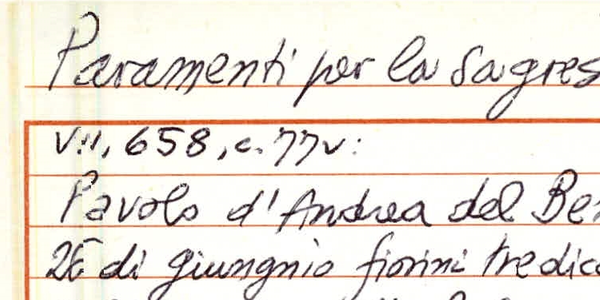 Paramenti per la Sagres
VII, 658, c. 77v:
Pavolo d'Andrea del Be
di giungnio fiorini tredic